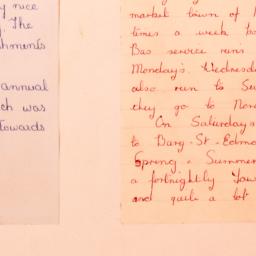 y nice
The
shments
annual
ch was
towards
market town of
times a week
Bus service runs
Monday's, Wednesda
also run to Su
they go to Nor
On Saturdays
to Bury-St-Edmo
Spring & Summer
a fortnightly
and quite a lot